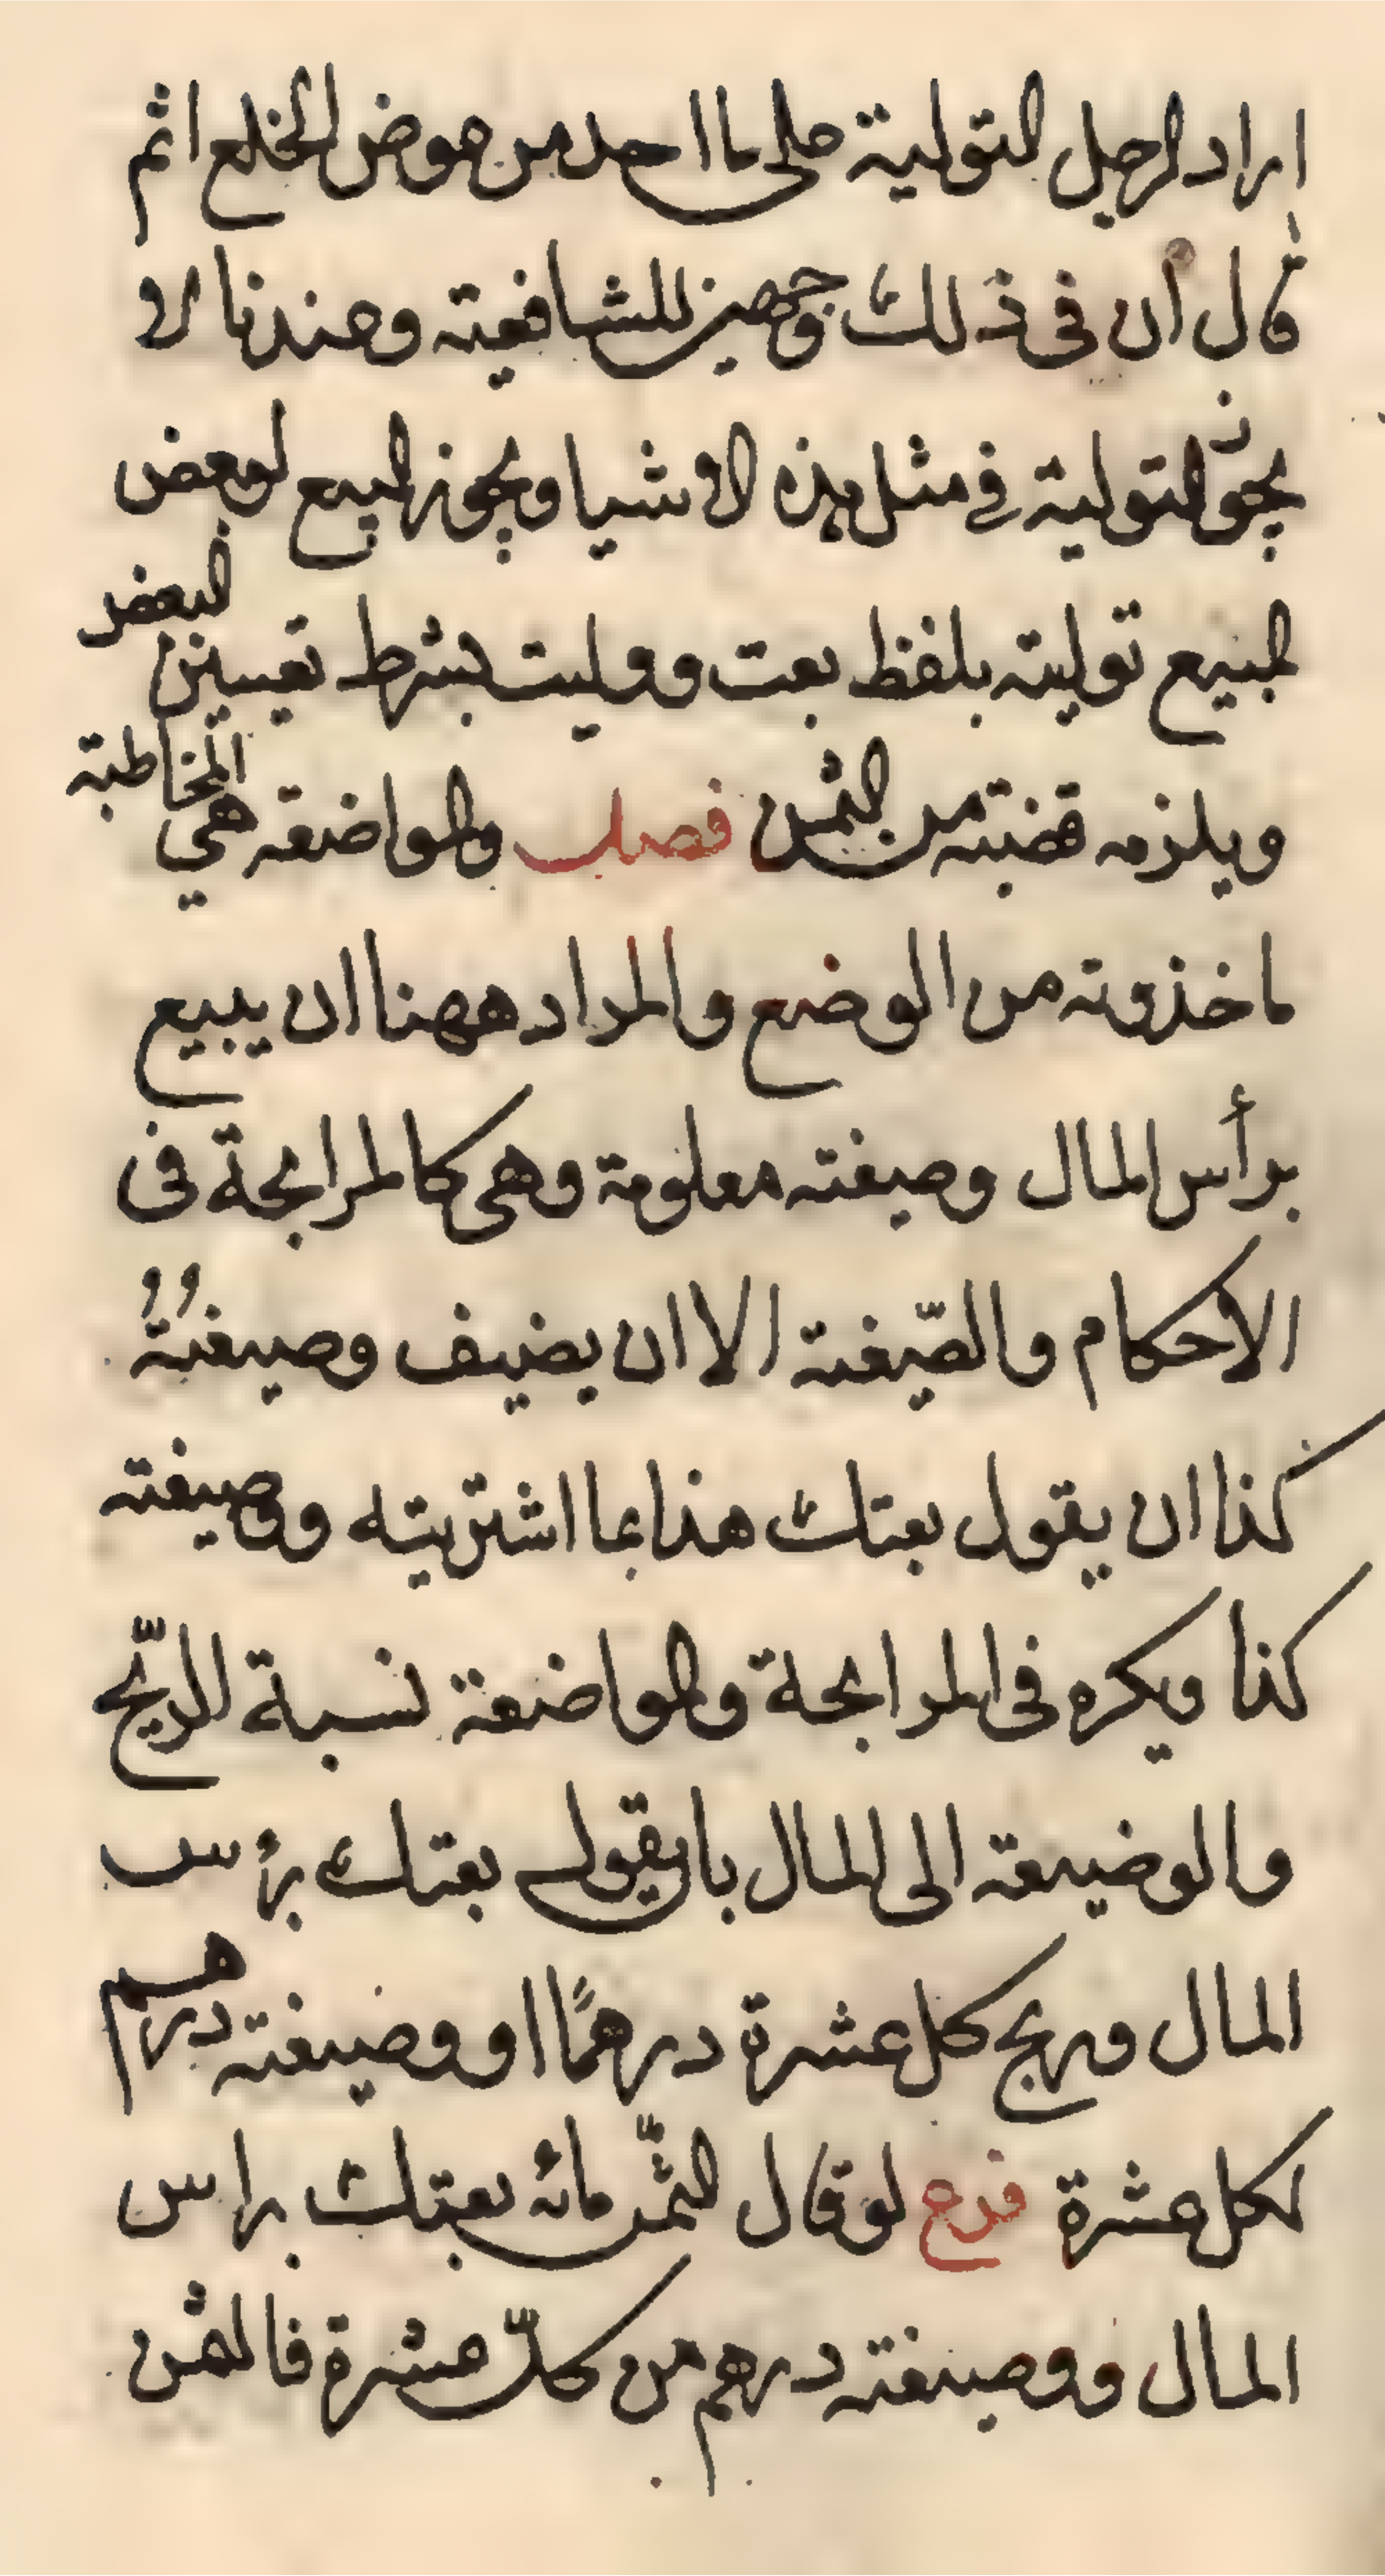 اراد الرجل التولية على ما اخذ من عوض الخلع اثم
قال أن في ذلك وجهين للشافعية وعندنا لا
يجوز التولية في مثل هذه الاشيا ويجوز لمبيع لو بعض البعض
لمبيع تولية بلفظ بعت ووليت بشرط تعيين
ويلزمه قضته من الثمن فصل والمواضعة هي المخاطبة
ماخذوته من الوضع والمراد ههنا ان يبيع
برأس المال وصيغته معلومة وهي كالمرابحة في
الاحكام والصّيغة الا ان يضيف وصيغتهُ
كذا ان يقول بعتك هذا بما اشتريته ووصيغته
كذا ويكره في المرابحة والمواضعة نسبة الرّبح
والوضيعة الى المال بان يقول بعتك برؤس
المال وربح كل عشرة درهمًا او وضيغة درهم
لكل عشرة فرع لو قال الثّمن مائة بعتك براس
المال ووصيغة درهم من كلّ عشرة فالثمن